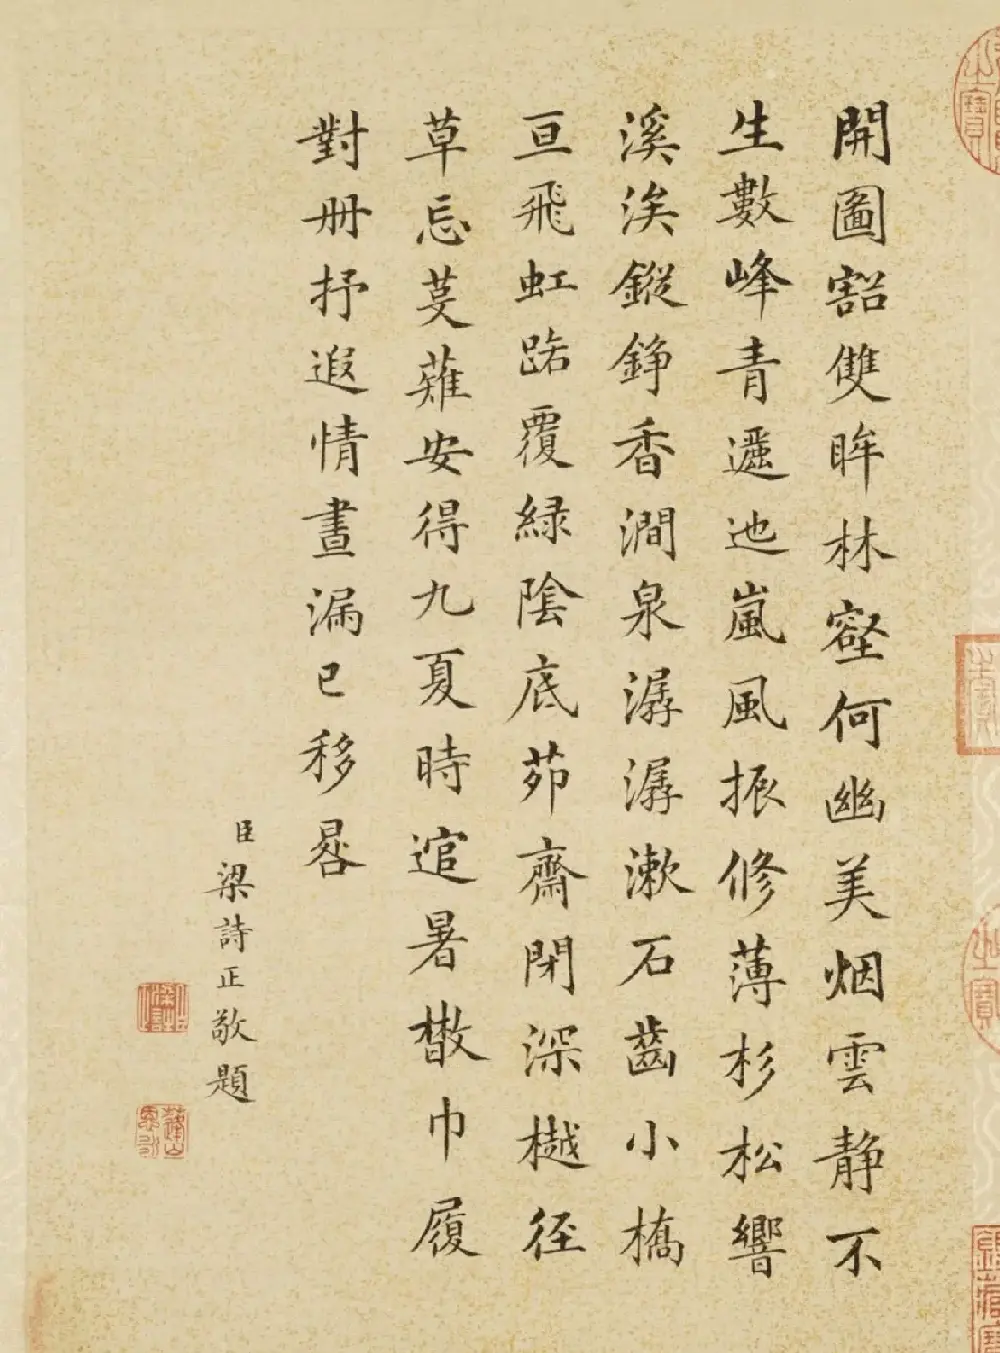 開圖豁雙眸林壑何幽美烟雲静不
生數峰青邐迤嵐風振修薄杉松響
溪涘鏦錚香澗泉潺潺漱石齒小橋
亘飛虹路覆緑陰底茆齋閉深樾径
草忘芟薙安得九夏時逭暑散巾履
對册抒遐情晝漏已移晷
臣梁詩正敬題